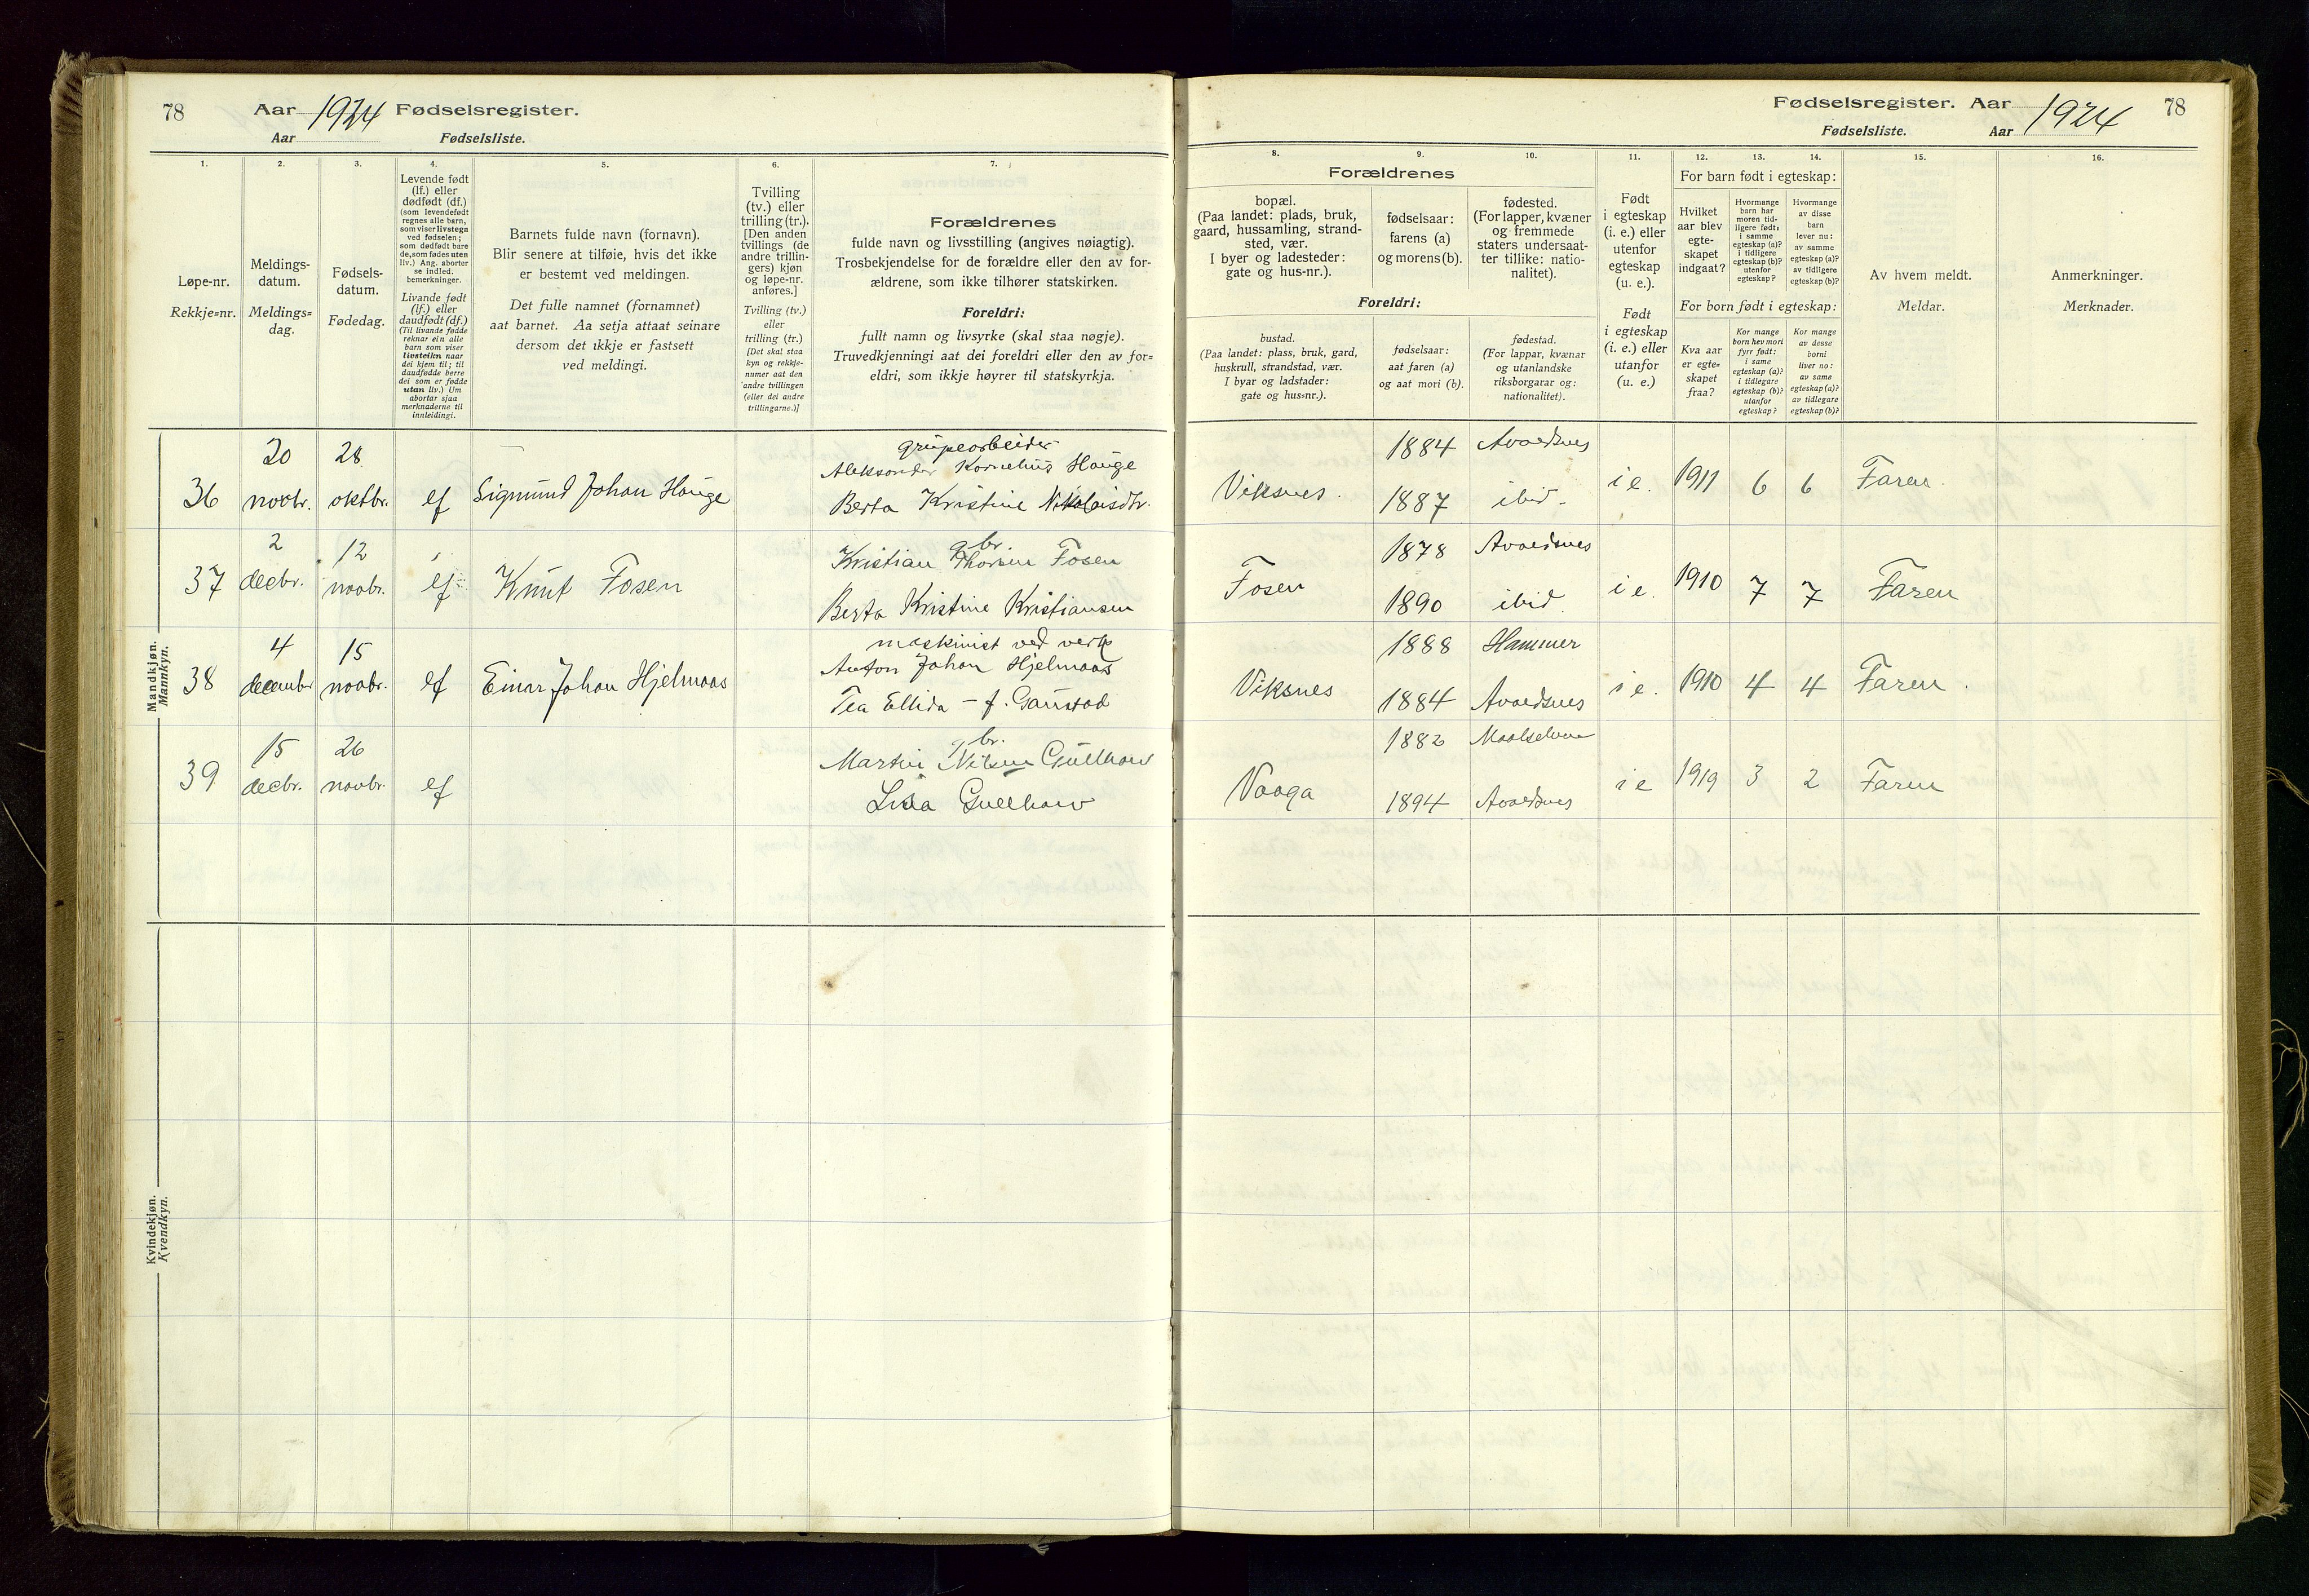 78 Aar 1924 Fødselsregister.
Aar Fødselsliste.
Fødselsregister. Aar 1924 78
Fødselsliste. Aar
1. 2. 3. 4. 5. 6. 7.
Løpe-nr.
Rekkje=nr.
Meldings-
datum.
Meldings=
dag.
Fødsels-
datum.
Fødedag.
Levende født
(lf.) eller
dødfødt (df.)
(som levendefødt
regnes alle barn,
som viser livstegn
ved fødselen;
som dødfødt bare
de, som fødes uten
liv.) Ang. aborter
se indled.
bemerkninger.
Livande født
(lf.) eller
daudfødt (df.)
(Til livande fødde
reknar ein alle
barn som viser
livsteikn naar
dei kjem til; til
daudfødde berre
dei som er fødde
utan liv.) Um
abortar sjaa
merknaderne til
innleidingi.
Barnets fulde navn (fornavn).
Blir senere at tilføie, hvis det ikke
er bestemt ved meldingen.
Det fulle namnet (fornamnet)
aat barnet. Aa setja attaat seinare
dersom det ikkje er fastsett
ved meldingi.
Tvilling
(tv.) eller
trilling (tr.).
[Den anden
tvillings (de
andre trillin-
gers) kjøn
og løpe-nr.
anføres.]
Tvilling (tv.)
eller
trilling (tr.)
[Det skal staa
kyn og rekkje-
numer aat den
andre tvillingen
(eller dei andre
trillingarne.)]
Forældrenes
fulde navn og livsstilling (angives nøiagtig).
Trosbekjendelse for de forældre eller den av for-
ældrene, som ikke tilhører statskirken.
Foreldri:
fullt namn og livsyrke (skal staa nøgje).
Truvedkjenningi aat dei foreldri eller den av for=
eldri, som ikkje høyrer til statskyrkja.
8. 9. 10. 11. 12. 13. 14. 15. 16.
Forældrenes
bopæl.
(Paa landet: plads, bruk,
gaard, hussamling, strand-
sted, vær.
I byer og ladesteder:
gate og hus-nr.).
fødselsaar:
farens (a)
og morens (b).
fødested.
(For lapper, kvæner
og fremmede
staters undersaat-
ter tillike: natio-
nalitet).
Foreldri:
bustad.
(Paa landet: plass, bruk, gard,
huskrull, strandstad, vær.
I byar og ladstader:
gate og hus=nr.).
fødselsaar:
aat faren (a)
og aat mori (b).
fødestad.
(For lappar, kvænar
og utanlandske
riksborgarar og:
nationalitet).
Født
i egteskap
(i. e.) eller
utenfor
egteskap
(u. e.).
Født
i egteskap
(i. e.) eller
utanfor
(u. e.)
For barn født i egteskap:
Hvilket
aar blev
egte-
skapet
indgaat?
Hvormange
barn har
moren tid-
ligere født:
i samme
egteskap (a)?
i tidligere
egteskap (b)?
utenfor
egteskap?
Hvormange
av disse
barn
lever nu:
av samme
egteskap (a)?
av tidligere
egteskap (b)?
For born født i egteskap:
Kva aar
er egte=
skapet
fraa?
Kor mange
born hev mori
fyrr født:
i same
egteskap (a)?
i tidlegare
egteskap (b)?
utanfor
egteskap?
Kor mange
av desse
borni
liver no:
av same
egteskap (a)?
av tidlegare
egteskap (b)?
Av hvem meldt.
Meldar.
Anmerkninger.
Merknader.
Mandkjøn.
Mannkyn.
36 20 novbr. 28 oktbr. lf Sigmund Johan Hauge
grubearbeider
Aleksander Kornelius Hauge
Berta Kristine Nikolaisdtr.
Viksnes. 1884 Avaldsnes
1887 ibid. i e. 1911 6 6 Faren.
37 2 decbr. 12 novbr. lf Knut Fosen
gbr.
Kristian Thorsen Fosen
Berta Kristine Kristiansen
Fosen 1878 Avaldsnes
1890 ibid. i e. 1910 7 7 Faren
38 4 december 15 novbr. lf Einar Johan Hjelmaas
maskinist ved verk
Anton Johan Hjelmaas
Tea Ellida – f. Gaustad
Viksnes 1888 Hammer
1884 Avaldsnes i e. 1910 4 4 Faren.
39 15 decbr. 26 novbr. lf
gbr.
Martin Nilsen Gullhav
Lina Gullhav
Vaaga 1882 Maalselven
1894 Avaldsnes i e 1919 3 2 Faren
Kvindekjøn.
Kvendkyn.